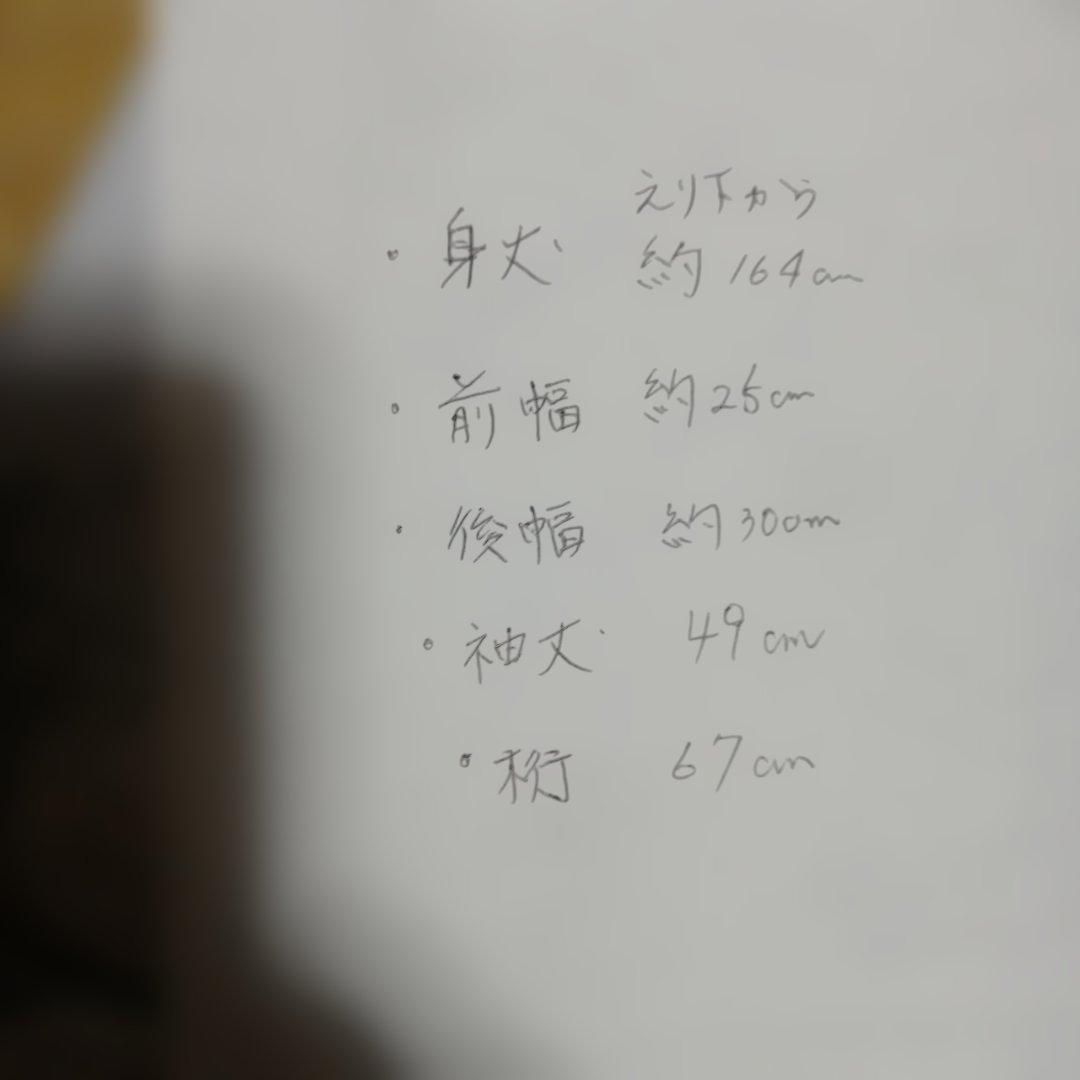 えり下から
・身丈 約164cm
・前幅 約25cm
・後幅 約30cm
・袖丈 49cm
・裄 67cm